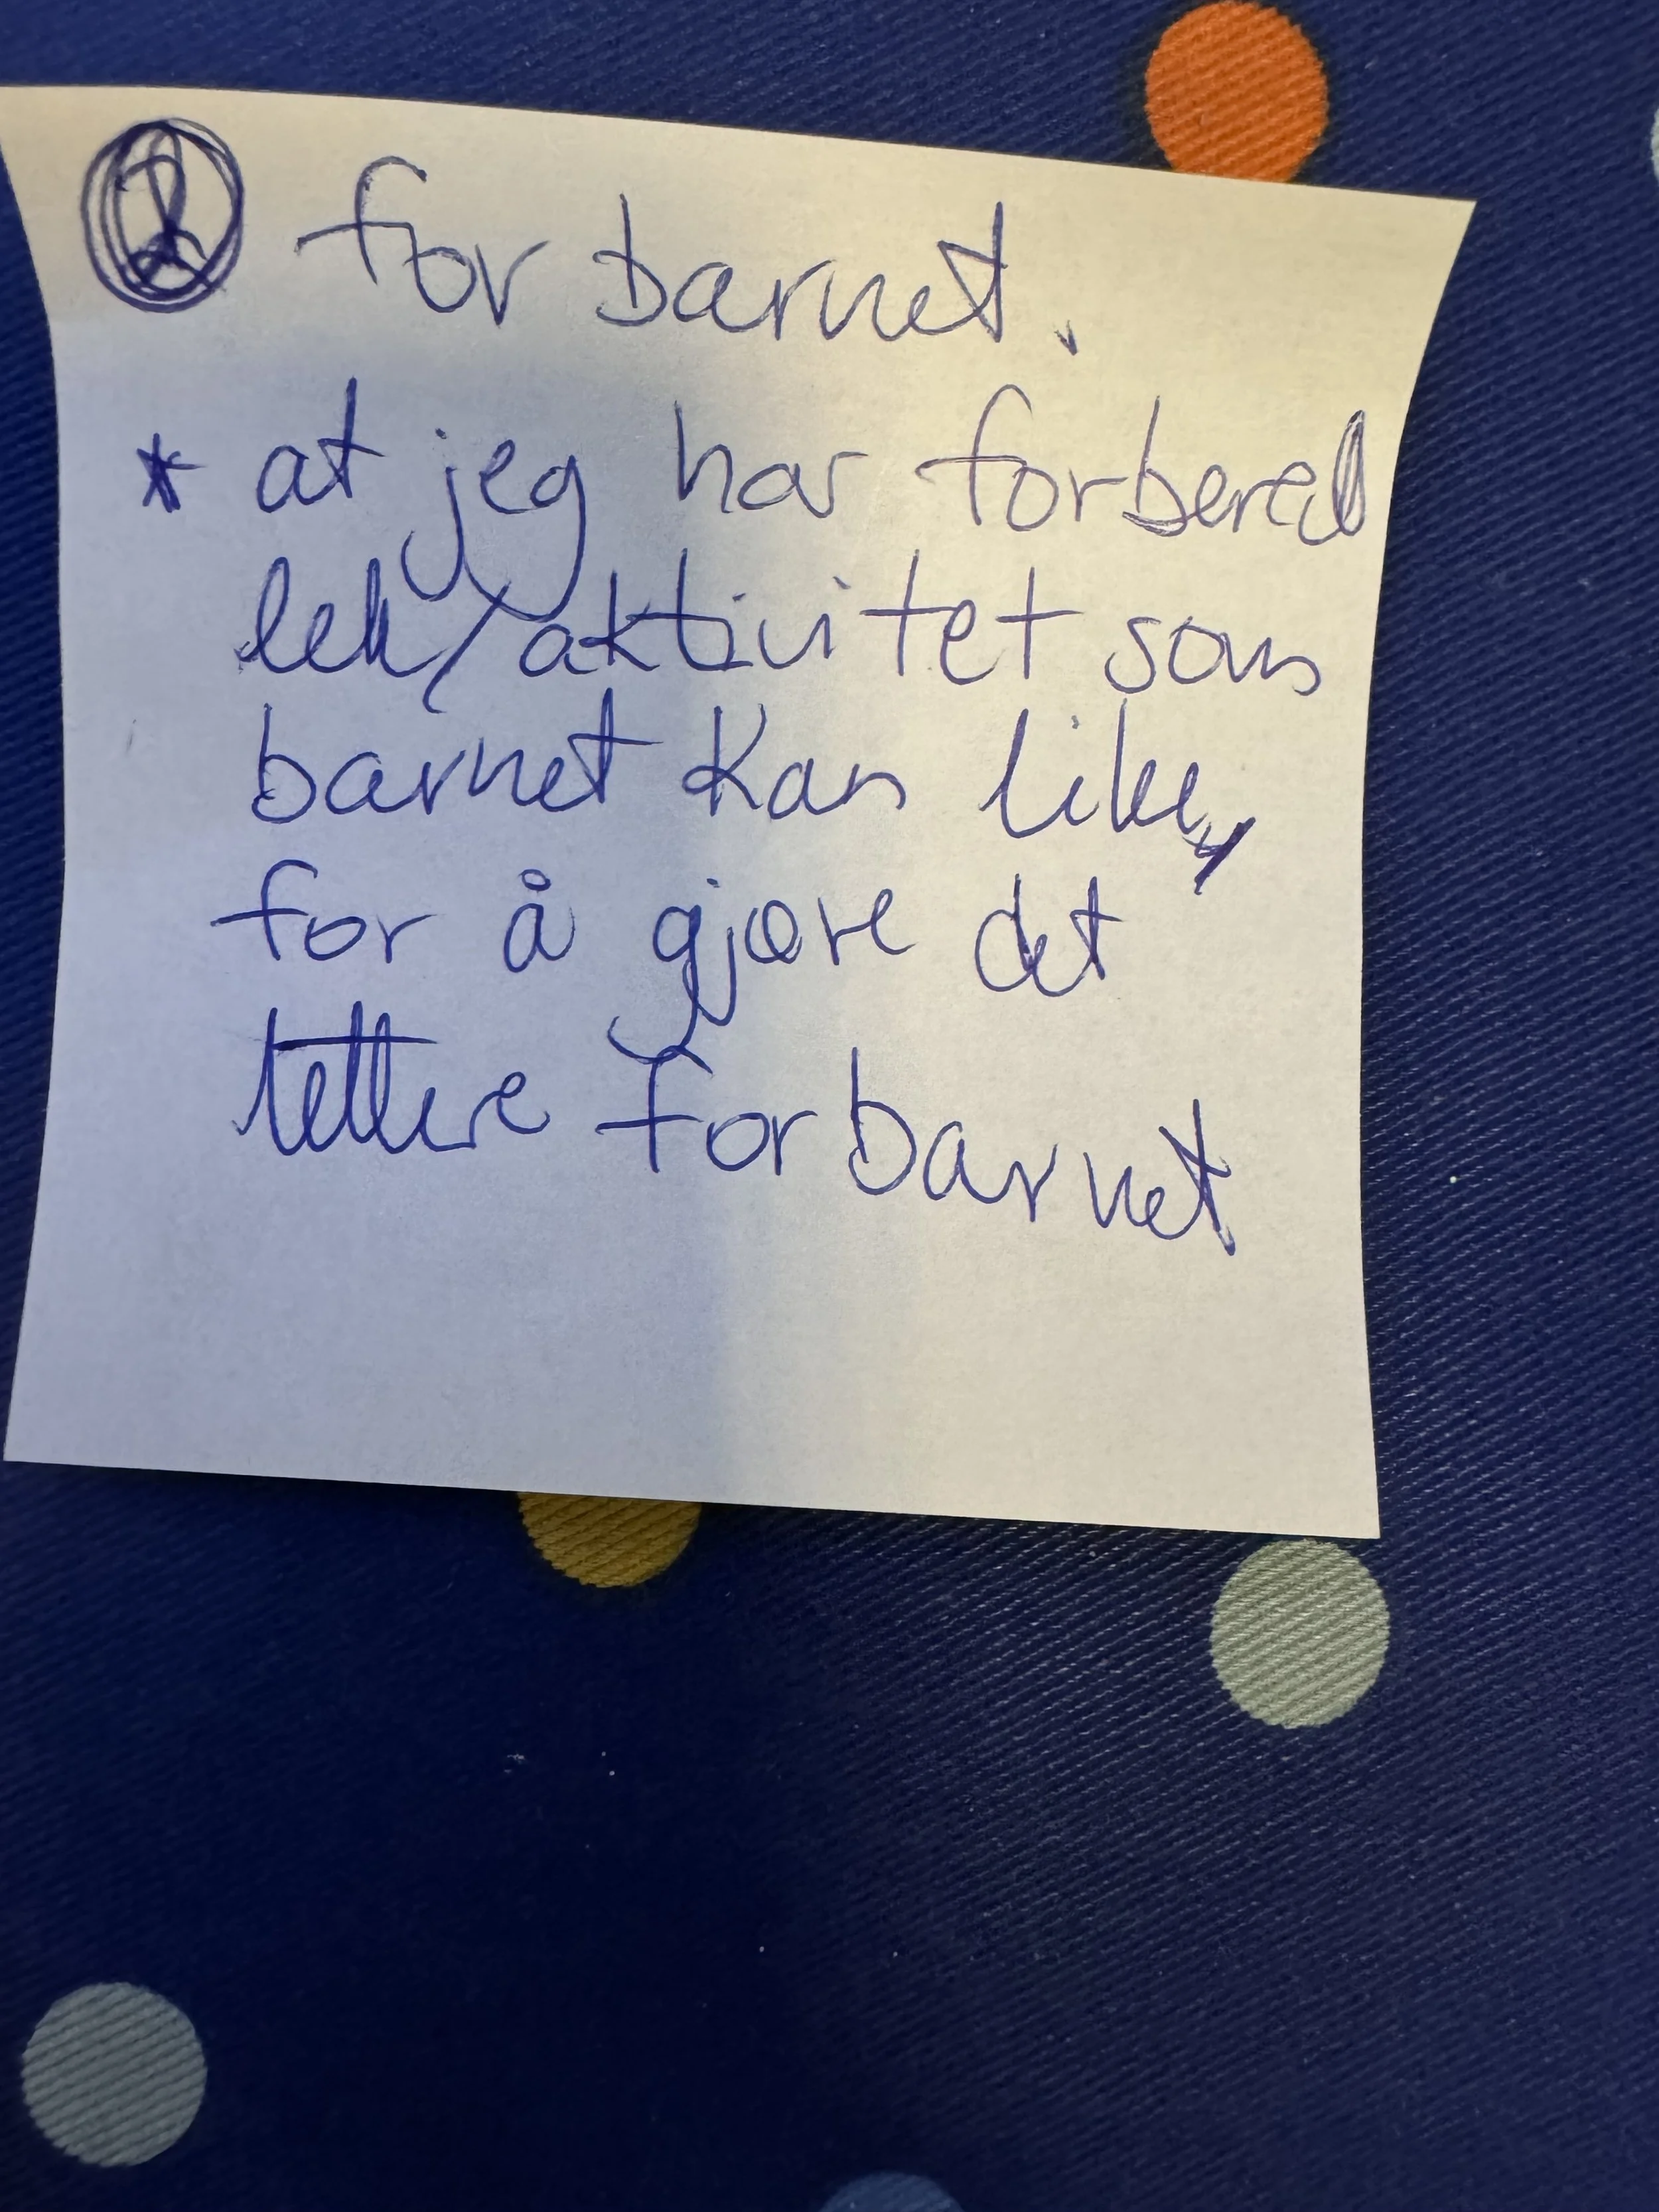 ② for barnet.
* at jeg har forbered
lek/aktivitet som
barnet kan like,
for å gjøre det
lettere for barnet